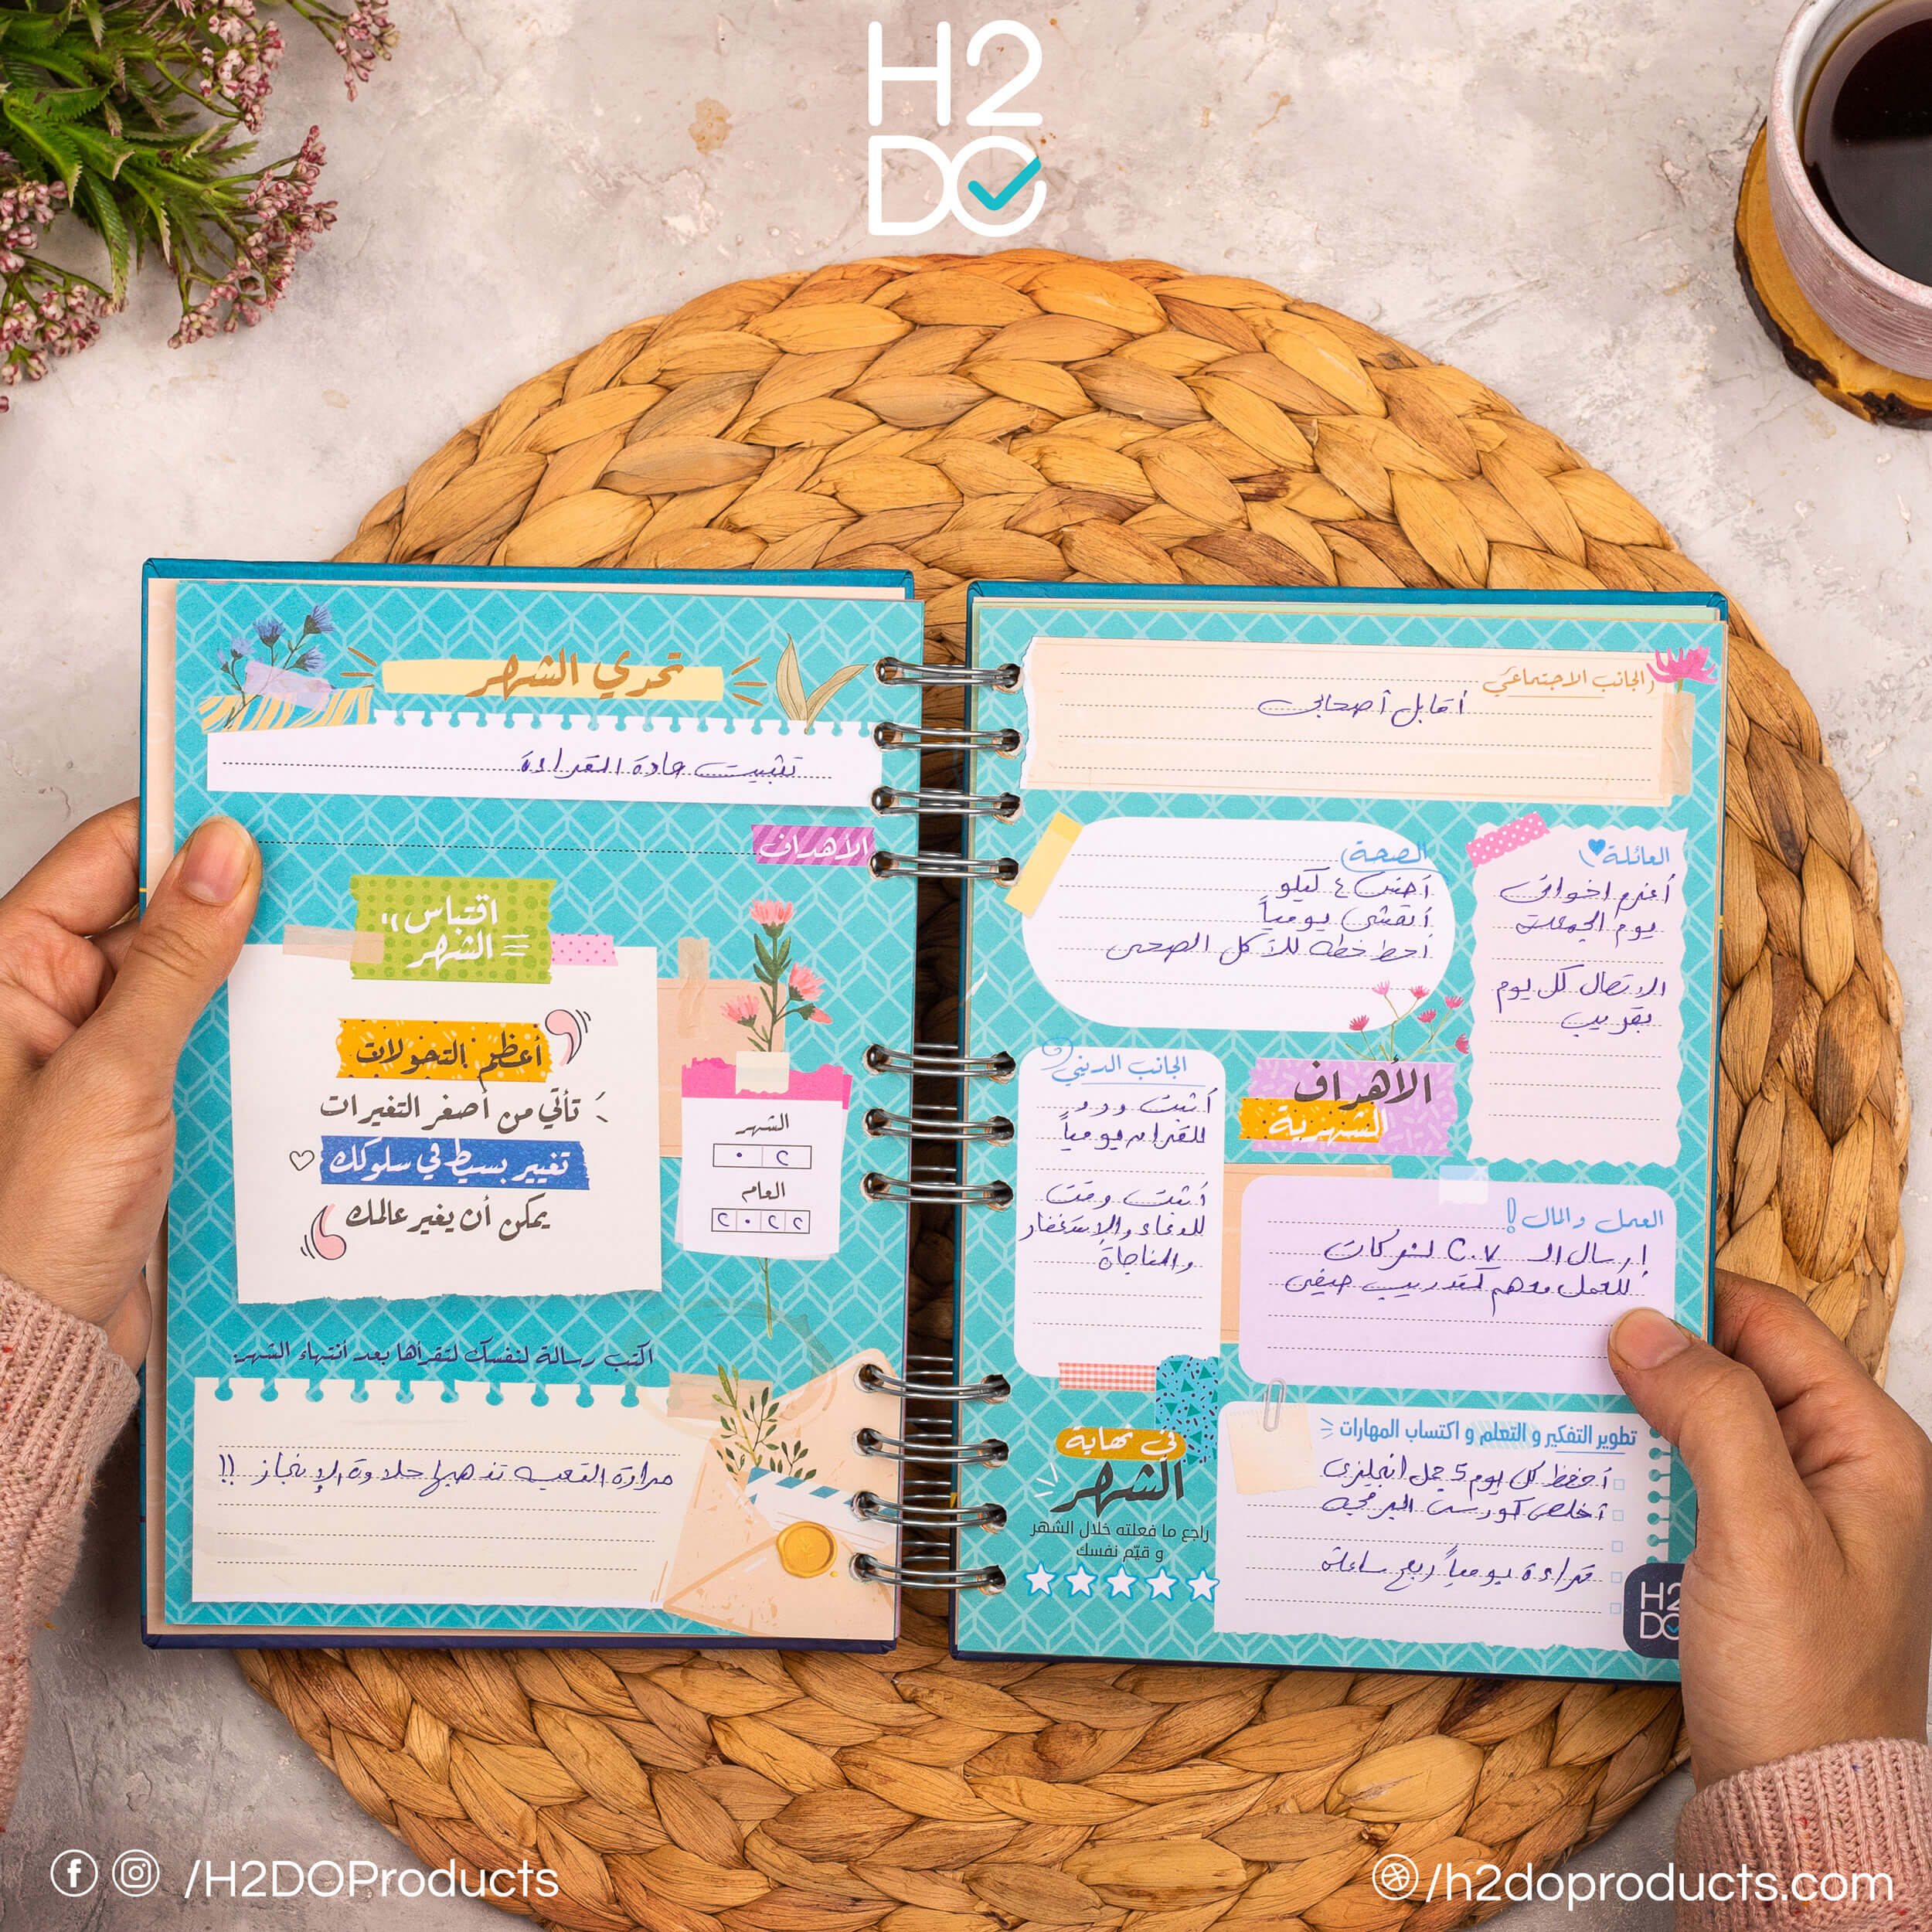 H2
DO
تحدي الشهر
تثبيت عادة القراءة
الأهداف
اقتباس
الشهر
أعظم التحولات
تأتي من أصغر التغيرات
تغيير بسيط في سلوكك
يمكن أن يغير عالمك
الشهر
٠ ٢
العام
٢ ٠ ٢ ٢
اكتب رسالة لنفسك لتقرأها بعد أنتهاء الشهر:
مرارة التعب تذهبها حلاوة الإنجاز !!
الجانب الاجتماعي
أقابل أصحابي
الصحة
أخس ٤ كيلو
أتمشى يومياً
أحط خطه للأكل الصحى
العائلة
أعزم اخواتى
يوم الجمعة
الإتصال كل يوم
بقريب
الجانب الديني
أثبت ورد
للقرآن يومياً
أثبت وقت
للدعاء والإستغفار
والمناجاة
الأهداف
الشهرية
العمل والمال !
إرسال الـ C.V لشركات
للعمل معهم كتدريب صيفى
تطوير التفكير و التعلم و اكتساب المهارات
أحفظ كل يوم 5 جمل انجليزى
أخلص كورس البرمجه
قراءة يومياً ربع ساعة
في نهاية
الشهر
راجع ما فعلته خلال الشهر
و قيّم نفسك
H2
DO
/H2DOProducts
/h2doproducts.com